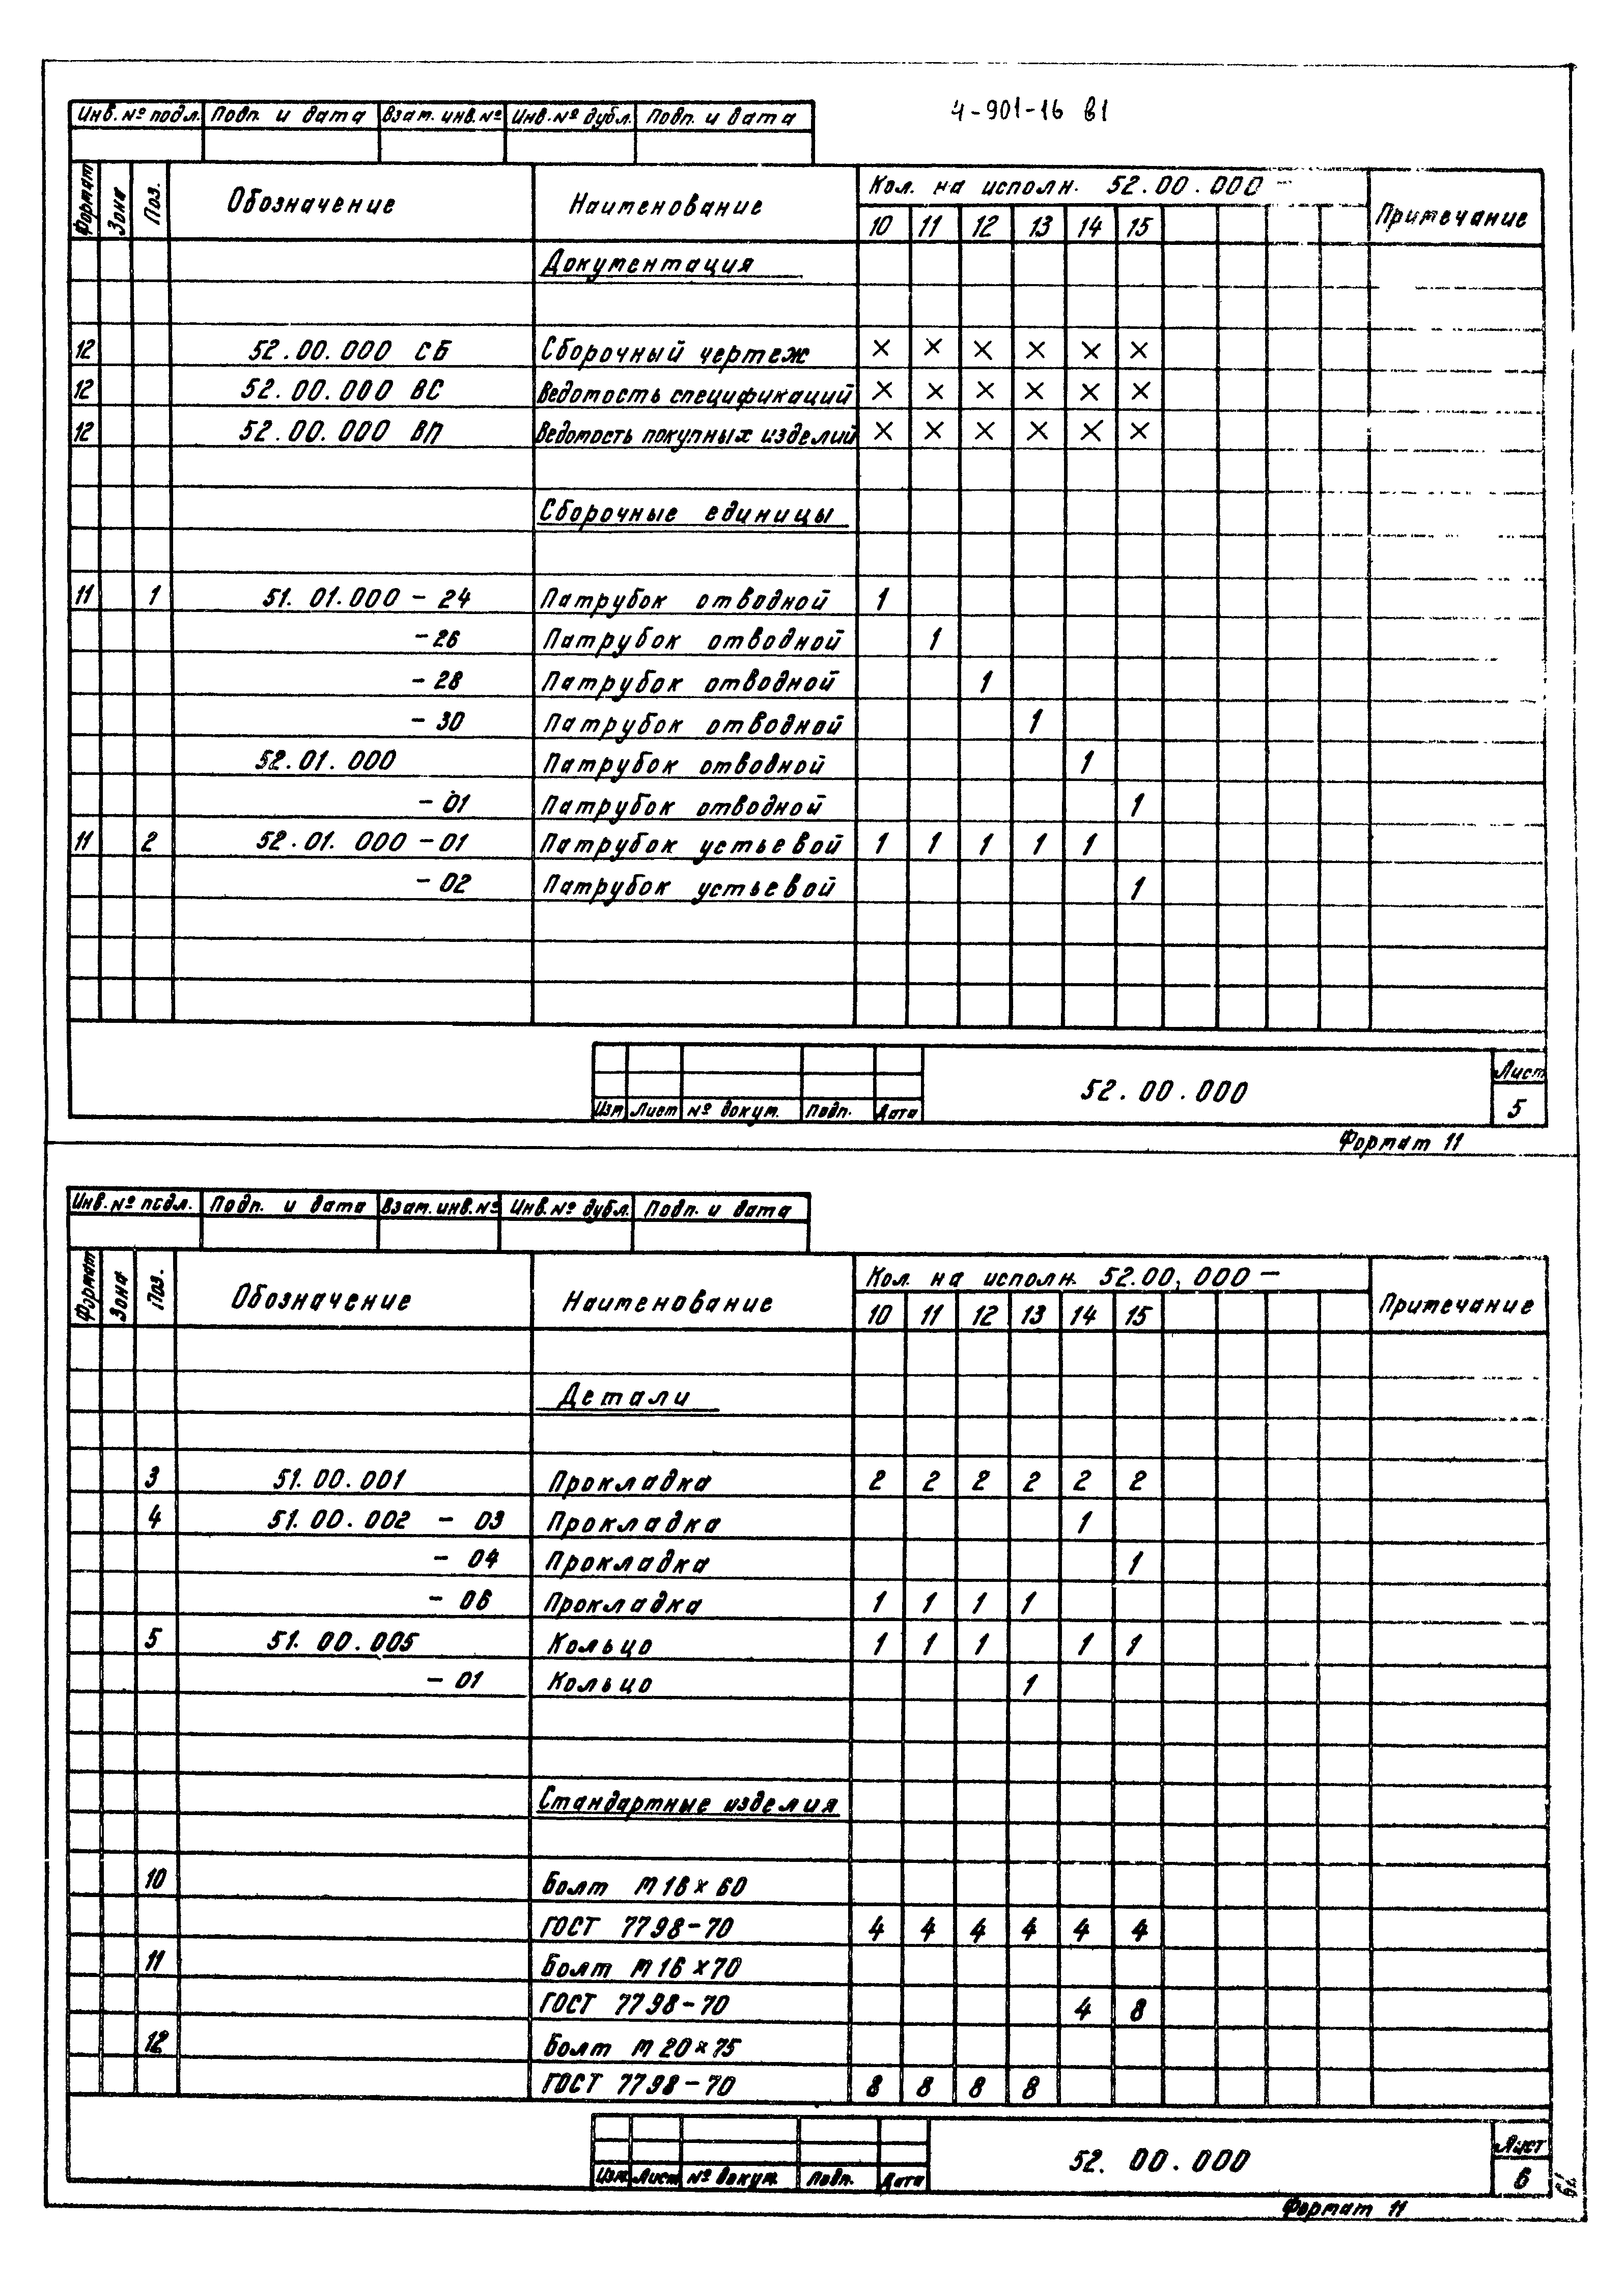 4-901-16 в1
Инв. № подл. Подп. и дата Взам. инв. № Инв. № дубл. Подп. и дата
Формат Зона Поз. Обозначение Наименование Кол. на исполн. 52.00.000 – Примечание
10 11 12 13 14 15
Документация
12 52.00.000 СБ Сборочный чертеж × × × × × ×
12 52.00.000 ВС Ведомость спецификаций × × × × × ×
12 52.00.000 ВП Ведомость покупных изделий × × × × × ×
Сборочные единицы
11 1 51.01.000 – 24 Патрубок отводной 1
– 26 Патрубок отводной 1
– 28 Патрубок отводной 1
– 30 Патрубок отводной 1
52.01.000 Патрубок отводной 1
– 01 Патрубок отводной 1
11 2 52.01.000 – 01 Патрубок устьевой 1 1 1 1 1
– 02 Патрубок устьевой 1
52.00.000 Лист
Изм Лист № докум. Подп. Дата 5
Формат 11
Инв. № подл. Подп. и дата Взам. инв. № Инв. № дубл. Подп. и дата
Формат Зона Поз. Обозначение Наименование Кол. на исполн. 52.00.000 – Примечание
10 11 12 13 14 15
Детали
3 51.00.001 Прокладка 2 2 2 2 2 2
4 51.00.002 – 03 Прокладка 1
– 04 Прокладка 1
– 06 Прокладка 1 1 1 1
5 51.00.005 Кольцо 1 1 1 1 1
– 01 Кольцо 1
Стандартные изделия
10 Болт М16×60
ГОСТ 7798-70 4 4 4 4 4 4
11 Болт М16×70
ГОСТ 7798-70 4 8
12 Болт М20×75
ГОСТ 7798-70 8 8 8 8
52.00.000 Лист
Изм Лист № докум. Подп. Дата 6
Формат 11